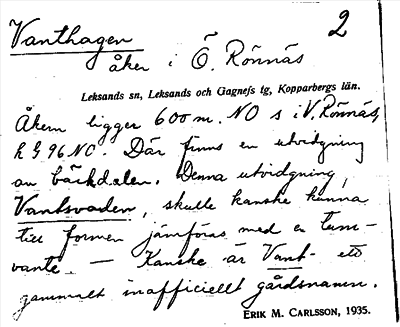 Vanthagen 2
åker i Ö. Rönnäs
Leksands sn, Leksands och Gagnefs tg, Kopparbergs län.
Åkern ligger 600 m. NO s i V. Rönnäs,
R § 96 NO. Där finns en utvidgning
av bäckdalen. Denna utvidgning,
Vantsvaden, skulle kanske kunna
till formen jämföras med en tum-
vante. — Kanske är Vant- ett
gammalt inofficiellt gårdsnamn.
ERIK M. CARLSSON, 1935.